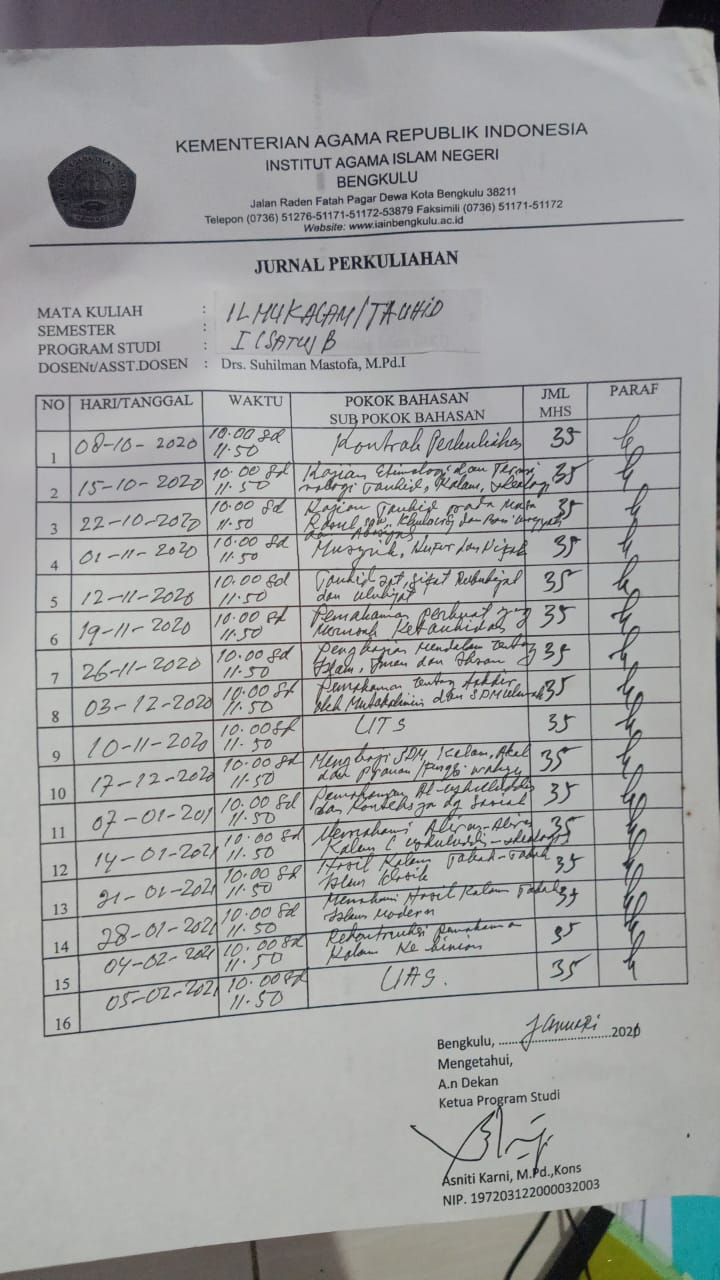 KEMENTERIAN AGAMA REPUBLIK INDONESIA
INSTITUT AGAMA ISLAM NEGERI
BENGKULU
Jalan Raden Fatah Pagar Dewa Kota Bengkulu 38211
Telepon (0736) 51276-51171-51172-53879 Faksimili (0736) 51171-51172
Website: www.iainbengkulu.ac.id
JURNAL PERKULIAHAN
MATA KULIAH : ILMU KALAM/TAUHID
SEMESTER : I (SATU) B
PROGRAM STUDI :
DOSENt/ASST.DOSEN : Drs. Suhilman Mastofa, M.Pd.I
NO HARI/TANGGAL WAKTU POKOK BAHASAN SUB POKOK BAHASAN JML MHS PARAF
1 08-10-2020 10.00 sd 11.50 Kontrak Perkuliahan 35
2 15-10-2020 10.00 sd 11.50 Kajian Etimologi dan Tauhid, Kalam, 35
3 22-10-2020 10.00 sd 11.50 Kajian Tauhid pada Masa Rasul saw, dan Bani Umayyah dan 35
4 01-11-2020 10.00 sd 11.50 Musyrik, Kufur dan Nifak 35
5 12-11-2020 10.00 sd 11.50 Tauhid Sifat Rububiyat dan Uluhiyat 35
6 19-11-2020 10.00 sd 11.50 Pemahaman yg Merusak Ketauhidan 35
7 26-11-2020 10.00 sd 11.50 Mendalam tentang Islam, Iman dan Ihsan 35
8 03-12-2020 10.00 sd 11.50 Pemahaman tentang Takdir oleh Mutakalimin dan 35
9 10-11-2020 10.00 sd 11.50 UTS 35
10 17-12-2020 10.00 sd 11.50 Kalam, Akal dan fungsi wahyu 35
11 07-01-201 10.00 sd 11.50 Pemahaman dan 35
12 14-01-2021 10.00 sd 11.50 Memahami Aliran-Aliran Kalam 35
13 21-01-2021 10.00 sd 11.50 Hasil Kalam Islam Klasik 35
14 28-01-2021 10.00 sd 11.50 Memahami Hasil Kalam Islam Modern 35
15 04-02-2021 10.00 sd 11.50 Kalam Ke 35
16 05-02-2021 10.00 sd 11.50 UAS. 35
Bengkulu, Januari 2021
Mengetahui,
A.n Dekan
Ketua Program Studi
Asniti Karni, M.Pd.,Kons
NIP. 197203122000032003